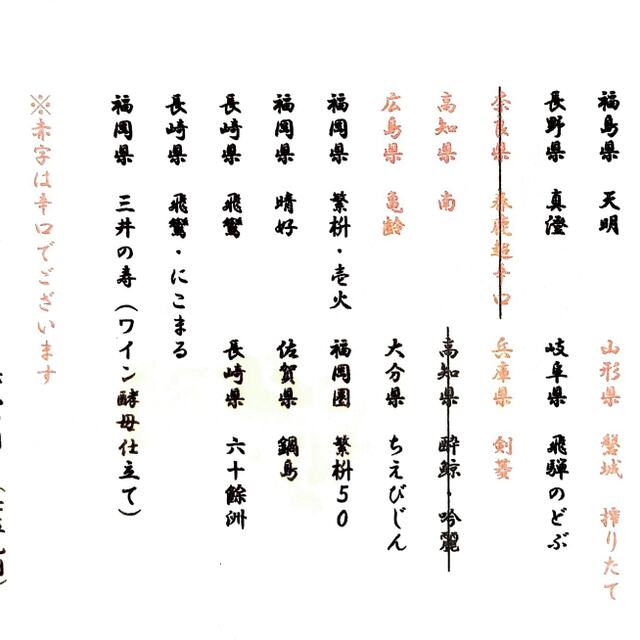 福島県 天明
山形県 磐城 搾りたて
長野県 真澄
岐阜県 飛騨のどぶ
奈良県 春鹿超辛口
兵庫県 剣菱
高知県 南
高知県 酔鯨・吟麗
広島県 亀齢
大分県 ちえびじん
福岡県 繁桝・壱火
福岡圏 繁桝50
福岡県 晴好
佐賀県 鍋島
長崎県 飛鸞
長崎県 六十餘洲
長崎県 飛鸞・にこまる
福岡県 三井の寿（ワイン酵母仕立て）
※赤字は辛口でございます